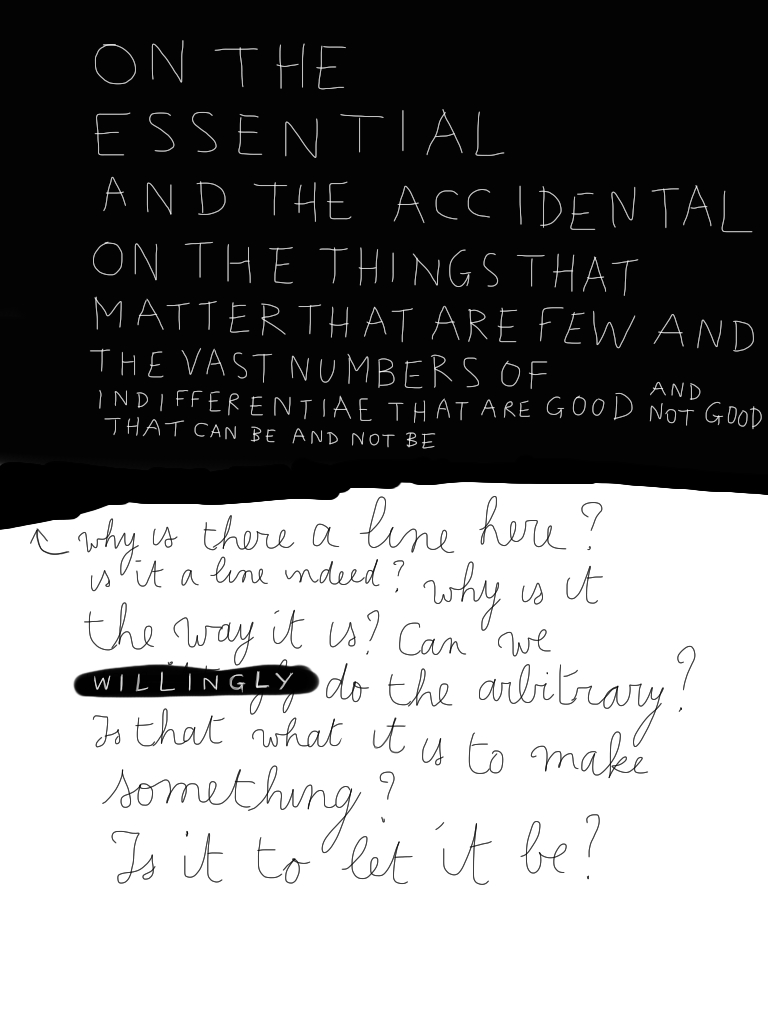 ON THE
ESSENTIAL
AND THE ACCIDENTAL
ON THE THINGS THAT
MATTER THAT ARE FEW AND
THE VAST NUMBERS OF
INDIFFERENTIAE THAT ARE GOOD AND NOT GOOD
THAT CAN BE AND NOT BE
why is there a line here?
is it a line indeed? why is it
the way it is? Can we
WILLINGLY do the arbitrary?
Is that what it is to make
something?
Is it to let it be?